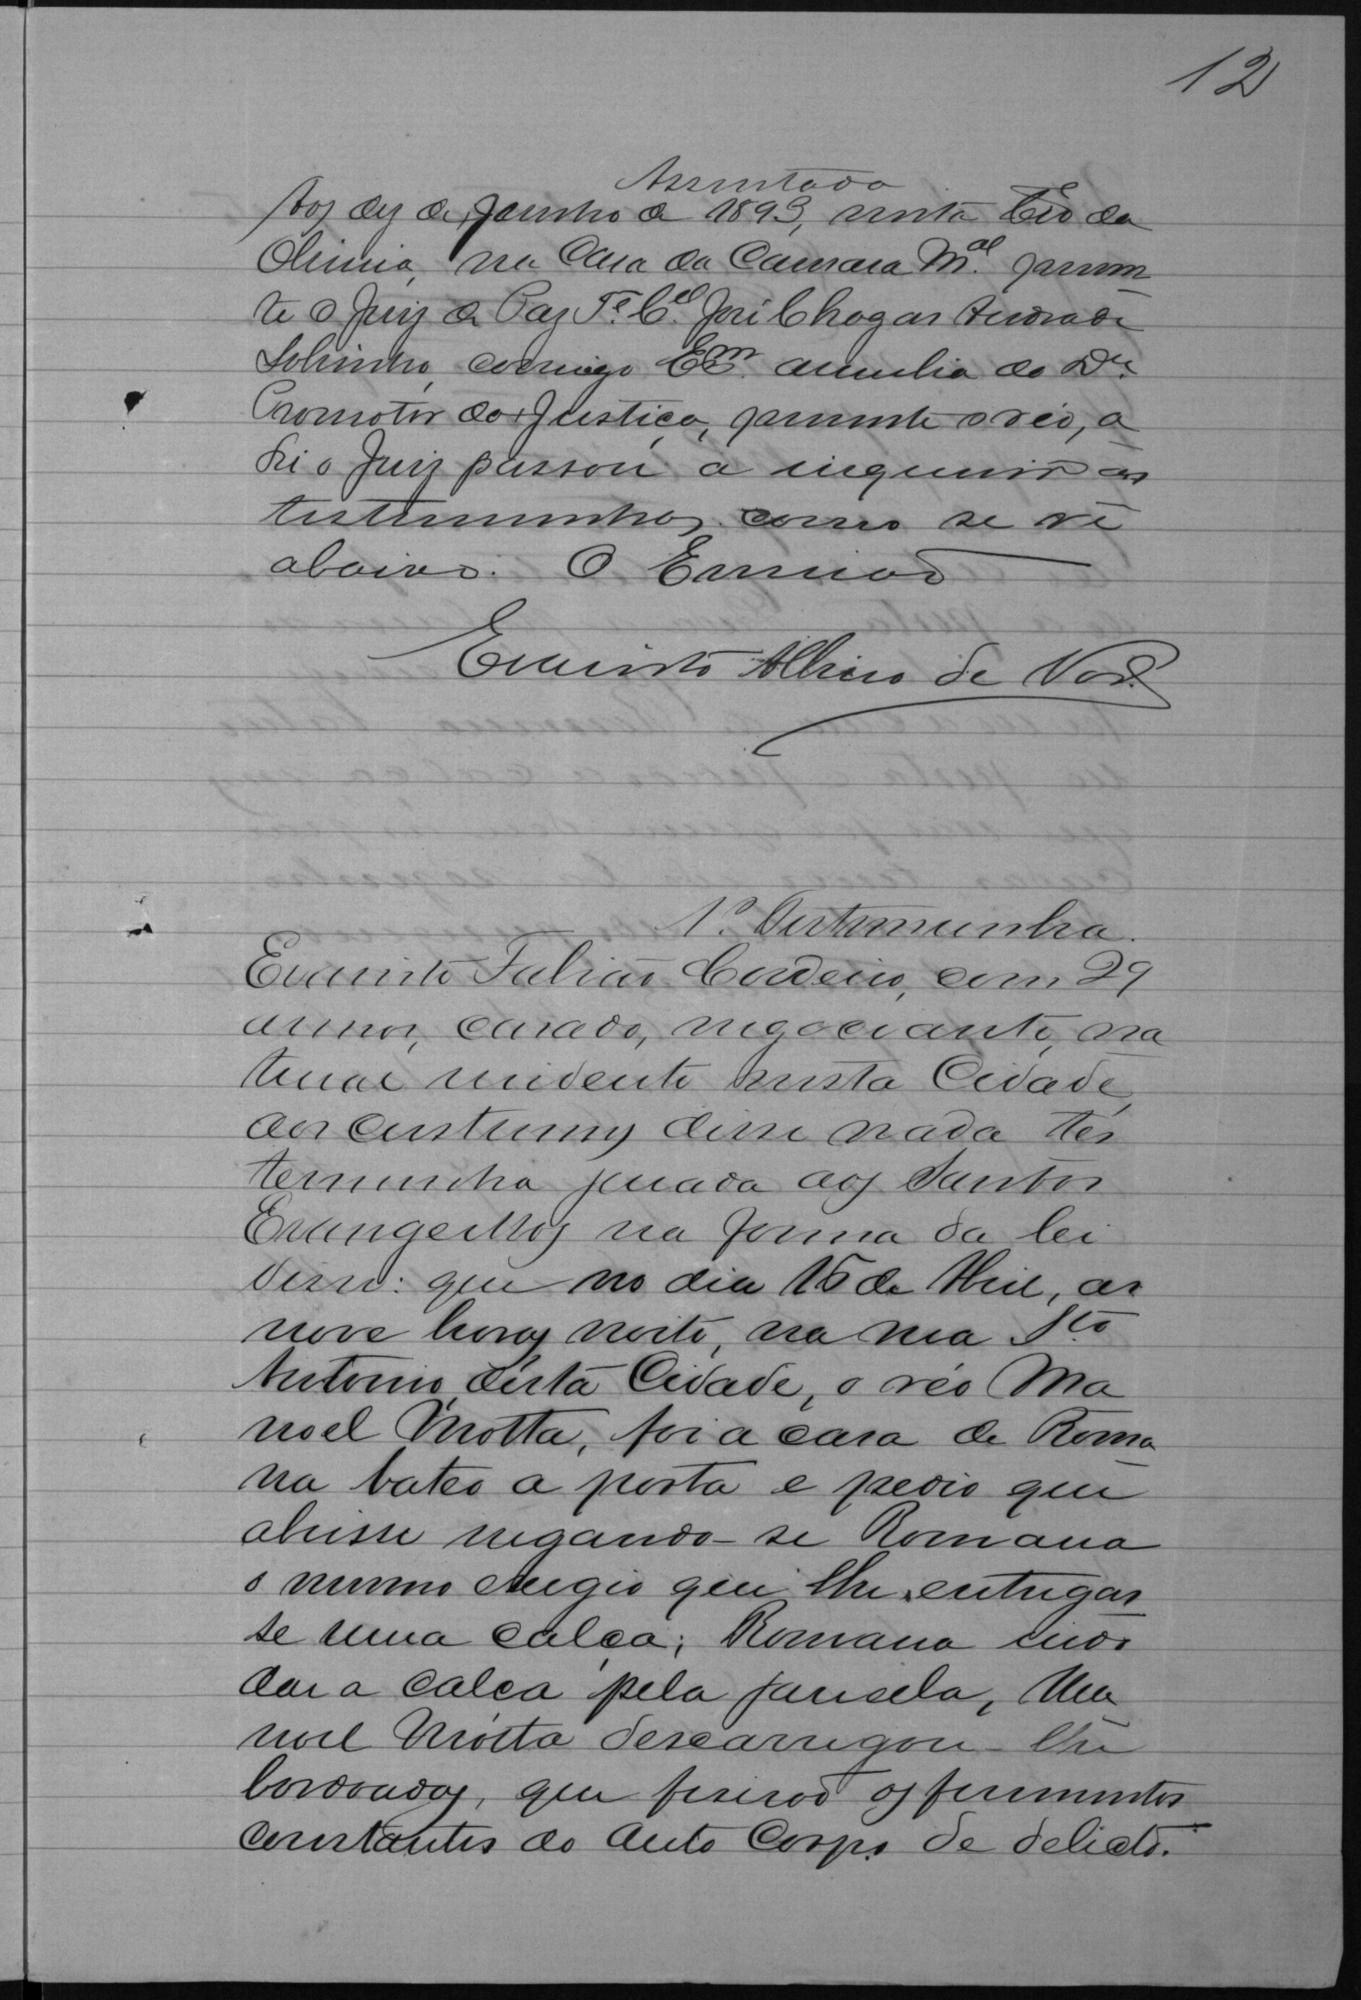 12
Assentada
Aos dez de Junho de 1893, nesta Cid da
Oliveira, na Casa da Camara Mal. presen
te o Juiz de Paz Te. Cel. José Chagas Andrade
Sobrinho, comigo Em
Promotor da Justiça, presente o réo, a
hi o Juiz passou a inquerir as
testemunhas como se vê
abaixo. O Escrivaõ
Evaristo Albino de
1ª Testemunha.
Evaristo Fabiaõ Cordeiro, com 29
annos, casado, negociante, na
tural residente nesta Cidade,
aos custumes disse nada tes
temunha jurada aos Santos
Evangelhos na forma da lei
disse: que no dia 15 de Abril, as
nove horas noite, na rua Sto
Antonio desta Cidade, o réo Ma
noel Motta, foi a casa de Roma
na bateo a porta e pedio que
abrisse negando-se Romana
o mesmo exegio que lhe entregas
se uma calça; Romana indo
dar a calca pela janella, Ma
noel Motta descarregou-lhe
bordoadas, que fiseraõ os ferimentos
constantes do Auto Corpo de delicto.